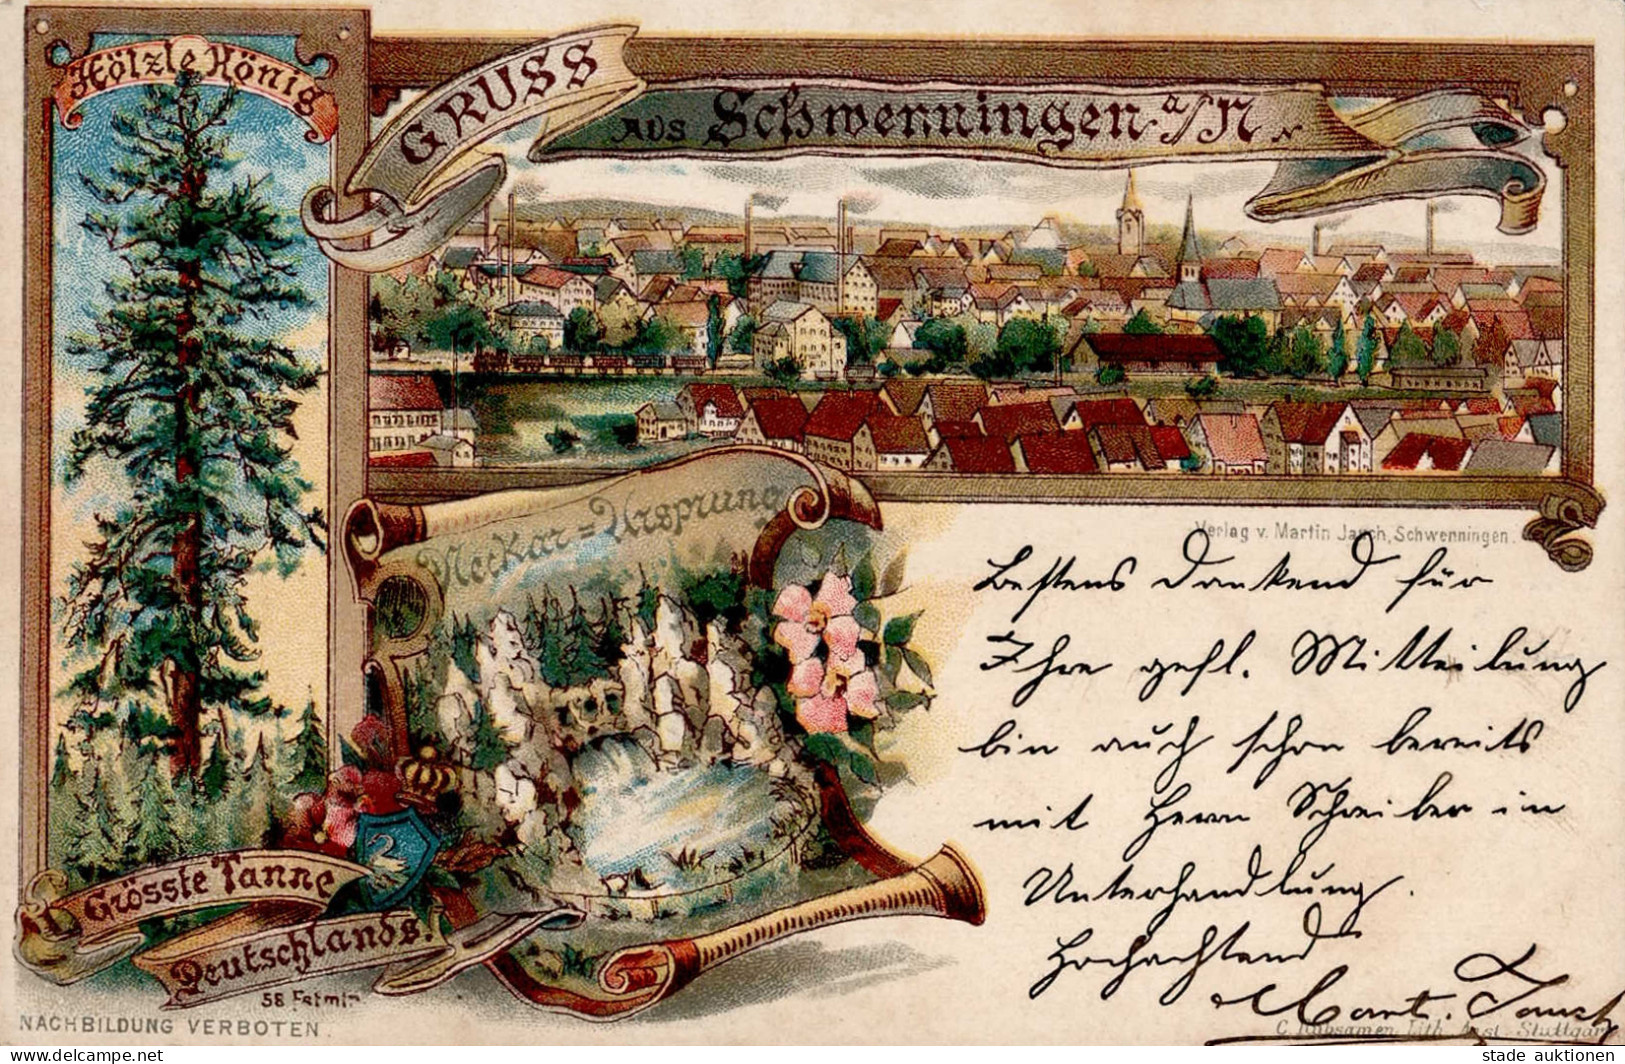 Hölzle König
GRUSS
AUS Schwenningen a/N
Neckar=Ursprung
Verlag v. Martin Jauch, Schwenningen.
Bestens dankend für
Ihre gefl. Mitteilung
bin auch schon bereits
mit Herrn Schreiber in
Unterhandlung.
Hochachtend
Mart. Jauch
Grösste Tanne
Deutschlands.
58 Fstmtr.
NACHBILDUNG VERBOTEN.
C. Rübsamen Lith. Anst. Stuttgart
stade auktionen